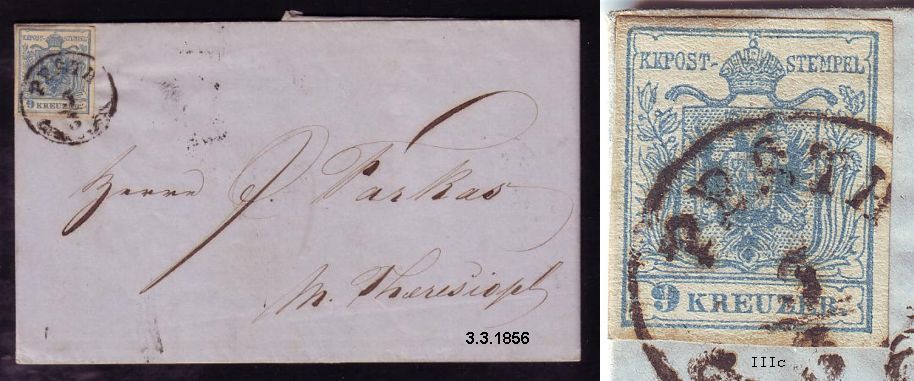 KKPOST-STEMPEL
PESTH
3
3
9 KREUZER
Herrn J. Farkas
M. Theresiopl
3.3.1856
KKPOST-STEMPEL
PESTH
3
9 KREUZER
IIIc